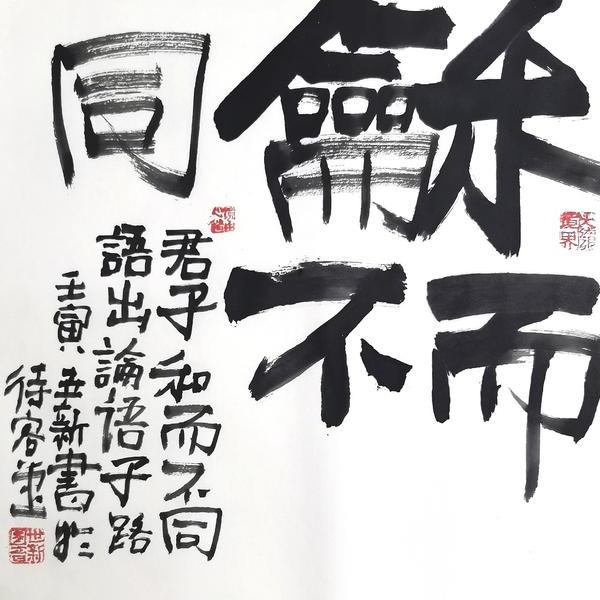 龢而不同
君子和而不同
語出論語子路
壬寅 世新書於
待客